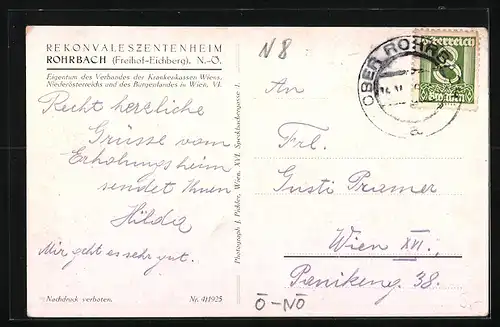 REKONVALESZENTENHEIM
ROHRBACH (Freihof-Eichberg). N.-Ö.
Eigentum des Verbandes der Krankenkassen Wiens,
Niederösterreichs und des Burgenlandes in Wien, VI.
Recht herzliche
Grüsse vom
Erholungsheim
sendet Ihnen
Hilda
Mir geht es sehr gut.
Nachdruck verboten.
Nr. 411925
Photograph J. Pichler, Wien, XVI. Speckbachergasse
N8
OBER ROHRB
a
Österreich
8
Groschen
An
Frl.
Gusti Pramer
Wien XVI.
38.
Ö-NÖ